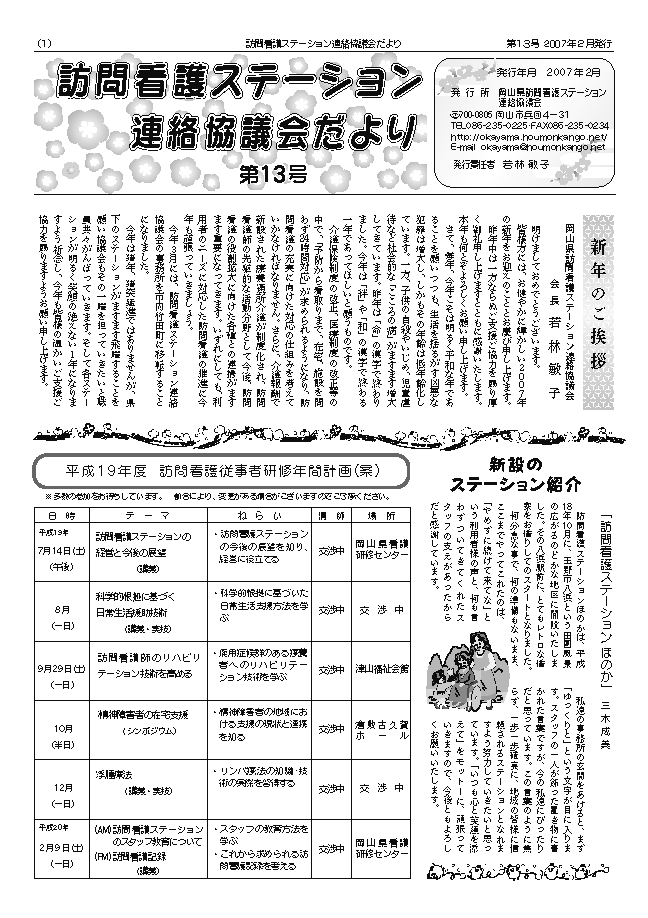 (1)
訪問看護ステーション連絡協議会だより
第13号 2007年2月発行
訪問看護ステーション
連絡協議会だより
第13号
発行年月 2007年2月
発行所 岡山県訪問看護ステーション
連絡協議会
〒700-0805 岡山市兵団4-31
TEL086-235-0225・FAX086-235-0234
http://okayama.houmonkango.net/
E-mail okayama@houmonkango.net
発行責任者 若林敏子
新年のご挨拶
岡山県訪問看護ステーション連絡協議会
会長 若林敏子
明けましておめでとうございます。
皆様方には、お健やかに輝かしい2007年
の新年をお迎えのこととお慶び申し上げます。
昨年中は一方ならぬご支援ご協力を賜り厚
く御礼申し上げますとともに感謝いたします。
本年も何とぞよろしくお願い申し上げます。
さて、毎年、今年こそは明るく平和な年であ
ることを願いつつも、生活を揺るがす凶悪な
犯罪は増大し、しかもその年齢は低年齢化し
ています。一方、子供の自殺やいじめ、児童虐
待など社会的な「こころの病」がますます増大
してきています。昨年は「命」の漢字で終わり
ました。今年は「絆」や「和」の漢字で終わる
一年であってほしいと願うものです。
介護保険制度の改正、医療制度の改正等の
中で、「予防から看取りまで、在宅、施設を問
わず24時間対応」が求められるようになり、訪
問看護の充実に向けた対応の仕組みを考えて
いかなければなりません。さらに、介護報酬で
新設された療養通所介護が制度化され、訪問
看護師の先駆的な活動分野として今後、訪問
看護の役割拡大に向けた各種との連携がます
ます重要になってきます。いずれにしても、利
用者のニーズに対応した訪問看護の推進に今
年も頑張っていきましょう。
今年3月には、訪問看護ステーション連絡
協議会の事務所を市内竹田町に移転すること
になりました。
今年は猪年、猪突猛進ではありませんが、県
下のステーションがますます飛躍することを
願い協議会もその一端を担っていきたいと職
員共々がんばっていきます。そして各ステー
ションが明るく笑顔の絶えない1年になりま
すよう祈念し、今年も皆様の温かいご支援ご
協力を賜りますようお願い申し上げます。
平成19年度 訪問看護従事者研修年間計画(案)
※多数の参加をお待ちしています。 都合により、変更がある場合がございますのでご了承ください。
日時 テーマ ねらい 講師 場所
平成19年
7月14日(土)
(午後)
訪問看護ステーションの
経営と今後の展望
(講義)
・訪問看護ステーション
の今後の展望を知り、
経営に役立てる
交渉中
岡山県看護
研修センター
8月
(一日)
科学的根拠に基づく
日常生活援助技術
(講義・実技)
・科学的根拠に基づいた
日常生活支援方法を学
ぶ
交渉中
交渉中
9月29日(土)
(一日)
訪問看護師のリハビリ
テーション技術を高める
・廃用症候群のある療養
者へのリハビリテー
ション技術を学ぶ
交渉中
津山福祉会館
10月
(半日)
精神障害者の在宅支援
(シンポジウム)
・精神障害者の地域にお
ける支援の現状と連携
を知る
交渉中
倉敷古久賀
ホール
12月
(一日)
浮腫療法
(講義・実技)
・リンパ療法の知識・技
術の実際を習得する
交渉中
交渉中
平成20年
2月9日(土)
(一日)
(AM)訪問看護ステーション
のスタッフ教育について
(PM)訪問看護記録
(講義)
・スタッフの教育方法を
学ぶ
・これから求められる訪
問看護記録を考える
交渉中
岡山県看護
研修センター
新設の
ステーション紹介
「訪問看護ステーションほのか」 三木成美
訪問看護ステーションほのかは、平成
18年10月に、玉野市八浜という田園風景
の広がるのどかな地区に開設いたしま
した。その八浜駅前に、とてもレトロな借
家をお借りしてのスタートとなりました。
何分急な事で、何の準備もないまま、
ここまでやってこれたのは、
「やめずに続けて来てな」と
いう利用者様の声と、何も言
わずついてきてくれたス
タッフの支えがあったから
だと感謝しています。
私達の事務所の玄関をあけると、まず
「ゆっくりと」という文字が目に入りま
す。スタッフの一人が飾った置き物に書
かれた言葉ですが、今の私達にぴったり
だと思っています。この言葉のように焦
らず、一歩一歩確実に、地域の皆様に信
頼されるステーションとなれま
すよう努力していきたいと思っ
ています。「いつも心と笑顔を添
えて」をモットーに、頑張って
いきますので、今後ともよろし
くお願いいたします。